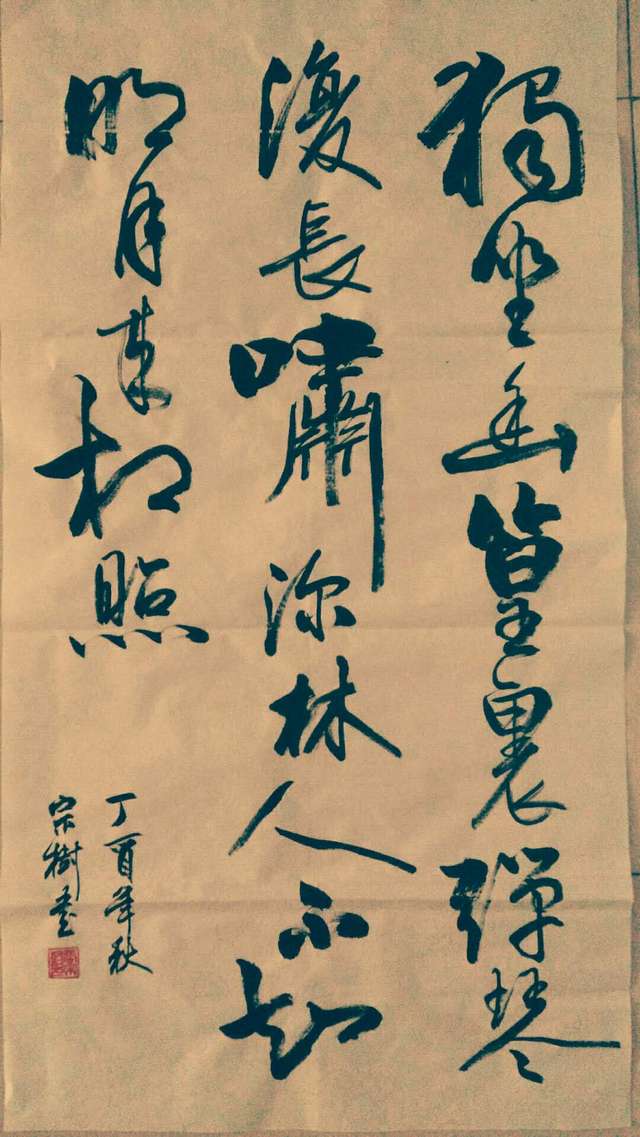 獨坐幽篁裏彈琴
復長嘯深林人不知
明月来相照
丁酉年秋
宗樹書